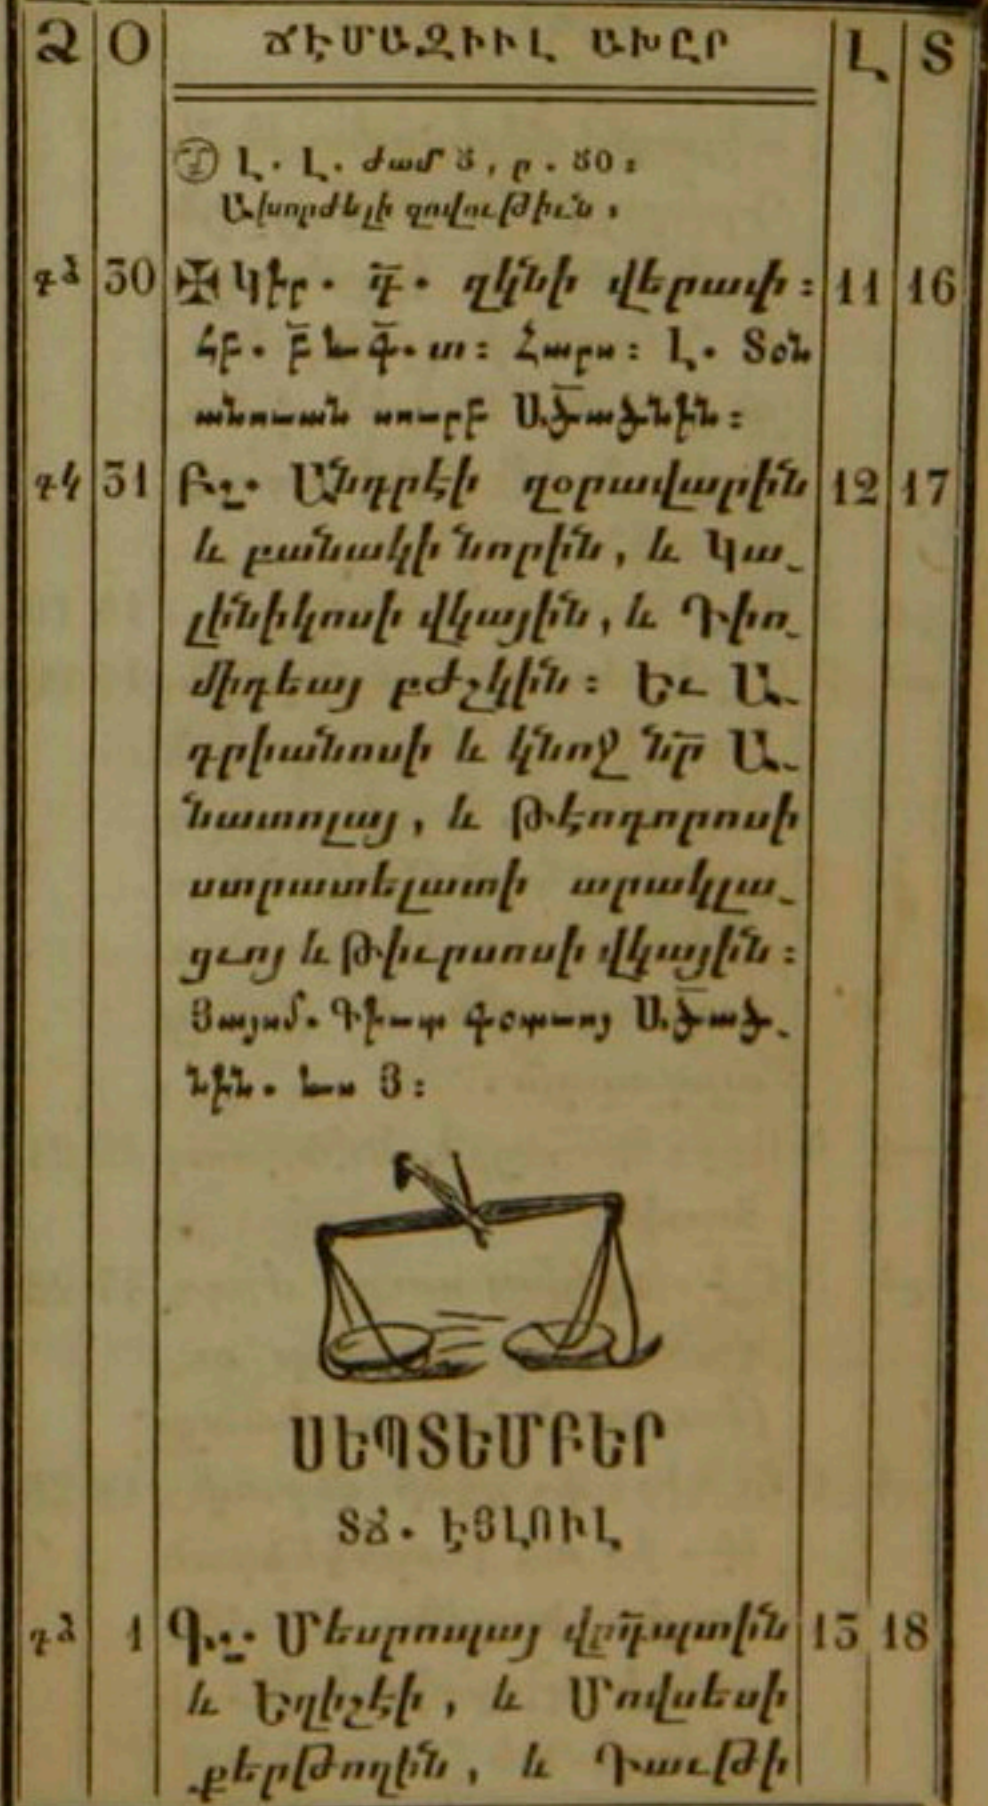 Ձ Օ ՃԷՄԱԶԻՒԼ ԱԽԸՐ Լ Տ
Լ. Լ. ժամ 8, ր. 80 ։
Ախորժելի զովութիւն ։
դձ 30 ✠ Կիր. դ̅. զկնի վերափ ։ 11 16
Հբ. բ̅ և գ̅. տ ։ Հարս ։ Լ. Տօն
անուան սուրբ Ա̅ծածնին ։
դկ 31 Բշ. Անդրէի զօրավարին 12 17
և բանակի նորին, և Կա֊
լինիկոսի վկային, և Դիո֊
միդեայ բժշկին ։ Եւ Ա֊
դրիանոսի և կնոջ նր̅ Ա֊
նատոլայ, և Թէոդորոսի
ստրատելատի արակլա֊
ցւոյ և Թիւրսոսի վկային ։
Յայսմ. Գիւտ գօտւոյ Ա̅ծած֊
նին. նաս Յ ։
ՍԵՊՏԵՄԲԵՐ
ՏՃ. ԷՅԼՈՒԼ
դձ 1 Գշ. Մեսրոպայ վրդ̅պտին 13 18
և Եղիշէի, և Մովսեսի
քերթողին, և Դաւթի